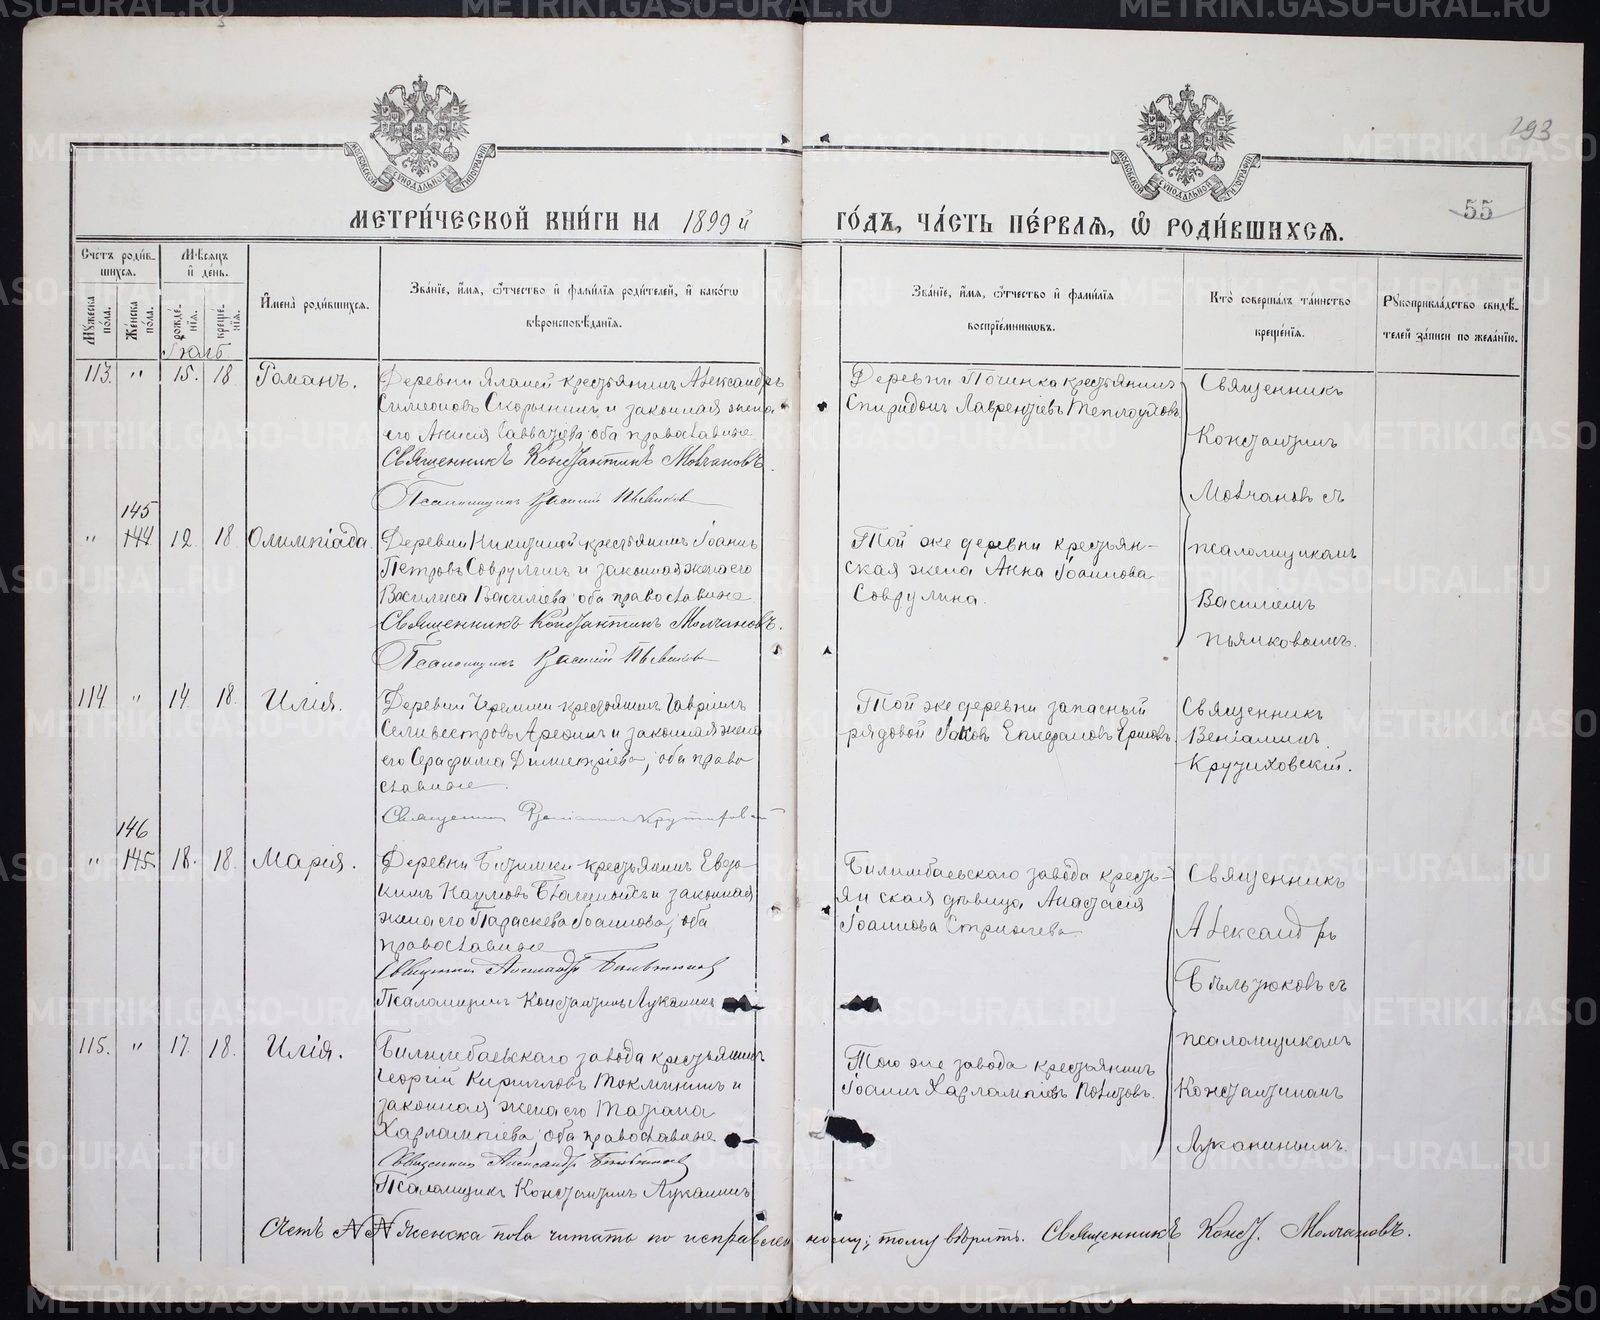 293
55
МЕТРИ́ЧЕСКОЙ КНИ́ГИ НА 1899й ГО́ДЪ, ЧА́СТЬ ПЕ́РВАѦ, Ѡ҆ РОДИ́ВШИХСѦ.
МОСКОВСКОЙ СѴНОДАЛЬНОЙ ТИПОГРАФІИ
МОСКОВСКОЙ СѴНОДАЛЬНОЙ ТИПОГРАФІИ
Сче́тъ роди́вшихсѧ.
Мꙋ́жеска по́ла.
Же́нска по́ла.
Мѣ́сѧцъ и҆ де́нь.
рожде́нїѧ.
креще́нїѧ.
И҆мена̀ роди́вшихсѧ.
Зва́нїе, и҆́мѧ, ѻ҆́тчество и҆ фами́лїѧ роди́телей, и҆ како́гѡ
вѣроисповѣ́данїѧ.
Зва́нїе, и҆́мѧ, ѻ҆́тчество и҆ фами́лїѧ
воспрїе́мниковъ.
Кто̀ соверша́лъ та́инство
креще́нїѧ.
Рꙋкоприкла́дство свидѣ́-
телей за́писи по жела́нїю.
Іюль
113. " 15. 18 Романъ.
Деревни Яланей крестьянинъ Александръ
Симеоновъ Скорынинъ и законная жена
его Анисія Савватіева оба православные
Священникъ Константинъ Молчановъ.
Псаломщикъ Василій Пьянковъ
Деревни Починка крестьянинъ
Спиридонъ Лаврентіевъ Теплоуховъ
Священникъ
Константинъ
Молчановъ съ
псаломщикомъ
Василіемъ
Пьянковымъ.
145
" 144 12 18 Олимпіада
Деревни Никитиной крестьянинъ Іоаннъ
Петровъ Соврулинъ и законная жена его
Василиса Василіева оба православные
Священникъ Константинъ Молчановъ.
Псаломщикъ Василій Пьянковъ
Той же деревни крестьян-
ская жена Анна Іоаннова
Соврулина.
114 " 14 18. Илія.
Деревни Черемши крестьянинъ Гавріилъ
Селивестровъ Арефинъ и законная жена
его Серафима Димитріева, оба право
славные.
Священникъ Веніаминъ
Той же деревни запасный
рядовой Іаковъ Епифановъ Ершовъ
Священникъ
Веніаминъ
146
" 145 18. 18. Марія.
Деревни Битимки крестьянинъ Евдо
кимъ Наумовъ и законная
жена его Параскева Іоаннова, оба
православные
Священникъ Александръ Бѣльтюковъ
Псаломщикъ Константинъ Луканинъ
Билимбаевскаго завода кресть-
янская дѣвица Анастасія
Іоаннова
Священникъ
Александръ
Бѣльтюковъ съ
псаломщикомъ
Константиномъ
Луканинымъ.
115. " 17. 18. Илія.
Билимбаевскаго завода крестьянинъ
Георгій Кирилловъ Токминнинъ и
законная жена его Татіана
Харлампіева, оба православные
Священникъ Александръ Бѣльтюковъ
Псаломщикъ Константинъ Луканинъ
Того же завода крестьянинъ
Іоаннъ Харлампіевъ
Счетъ №№ женска пола читать по исправленному; тому вѣрить. Священникъ Конст. Молчановъ.
METRIKI.GASO-URAL.RU